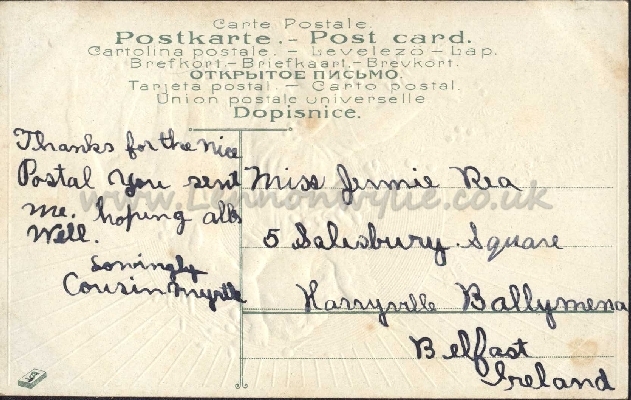 Carte Postale.
Postkarte. - Post card.
Cartolina postale. - Levelező-Lap.
Brefkort. - Briefkaart. - Brevkort.
ОТКРЫТОЕ ПИСЬМО.
Tarjeta postal. - Carto postal.
Union postale universelle
Dopisnice.
Thanks for the nice
Postal you sent
me. hoping alls
Well.
Lovingly
Cousin Myrtle
Miss Jennie Rea
5 Salesbury Square
Harryville Ballymena
Belfast
Ireland
www.Lennonwylie.co.uk